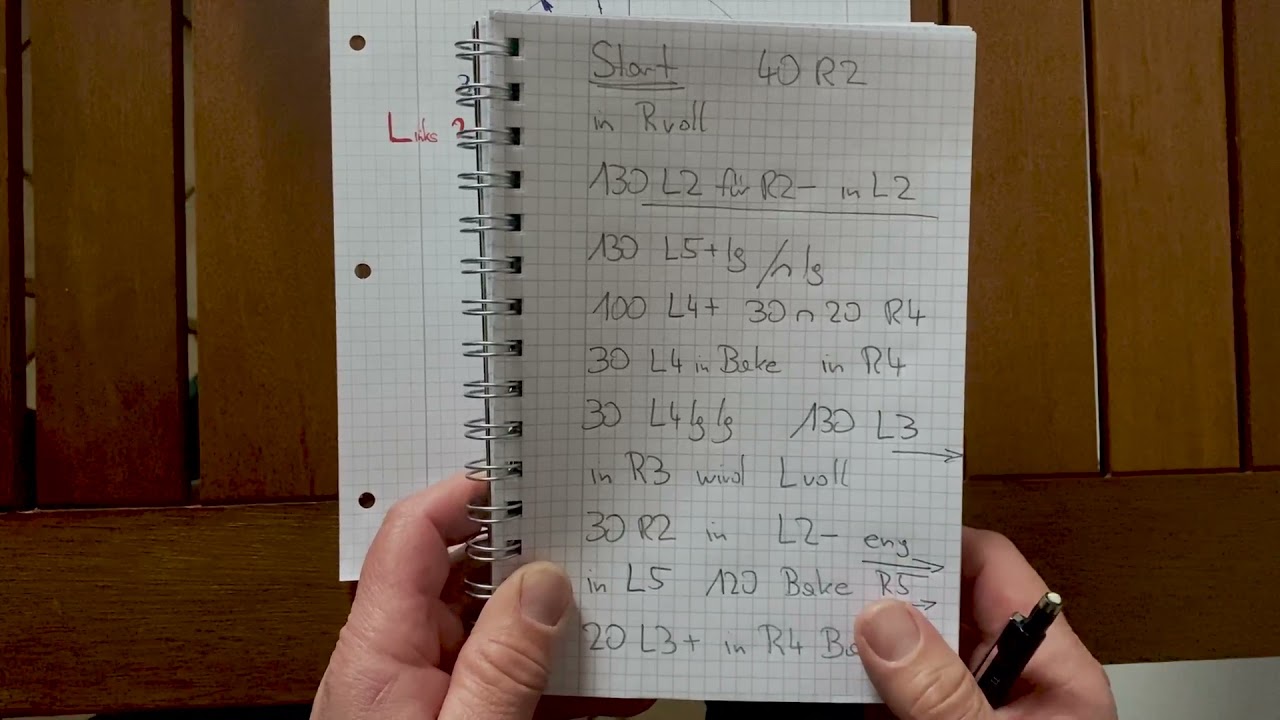 Links
Start 40 R2
in Rvoll
130 L2 für R2- in L2
130 L5+ lg /n lg
100 L4+ 30 n 20 R4
30 L4 in Bake in R4
30 L4 lg lg 130 L3
in R3 wird Lvoll
30 R2 in L2- eng
in L5 120 Bake R5
20 L3+ in R4